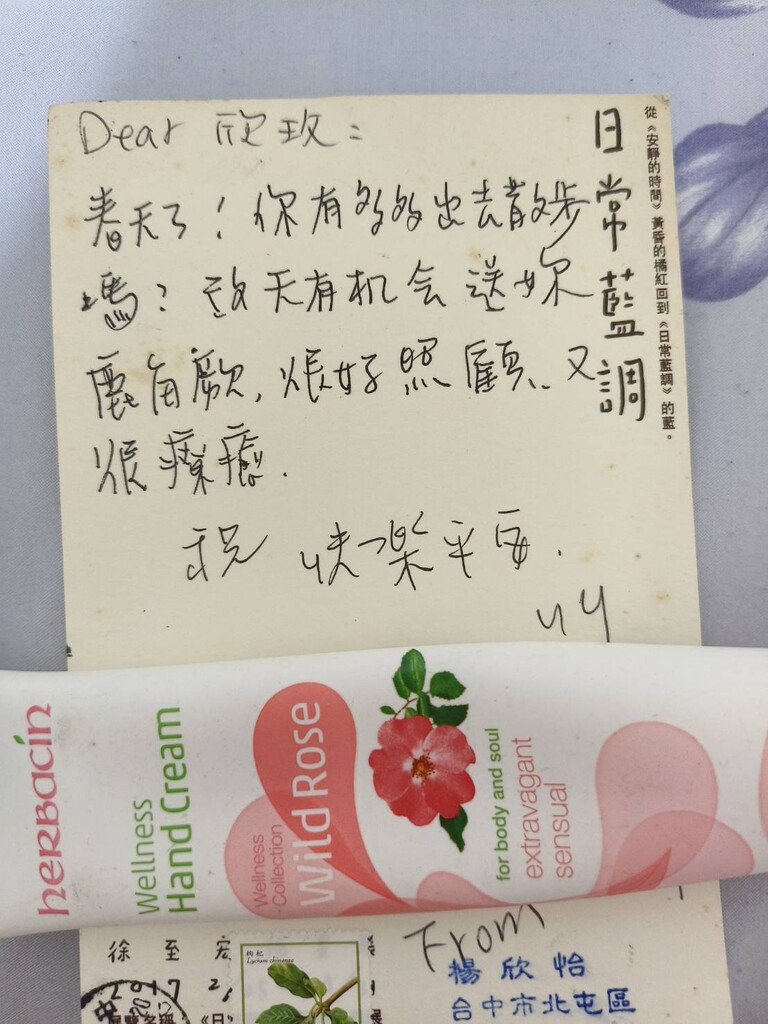 Dear 欣玫：
春天了！你有多多出去散步
嗎？改天有机会送妳
鹿角蕨，很好照顧、又
很療癒.
祝 快樂平安.
yy
日常藍調
從《安靜的時間》黃昏的橘紅回到《日常藍調》的藍。
herbacin
Wellness
Hand Cream
Wellness
Collection
Wild Rose
for body and soul
extravagant
sensual
徐至宏
2017
枸杞
Lycium chinense
From
楊欣怡
台中市北屯區